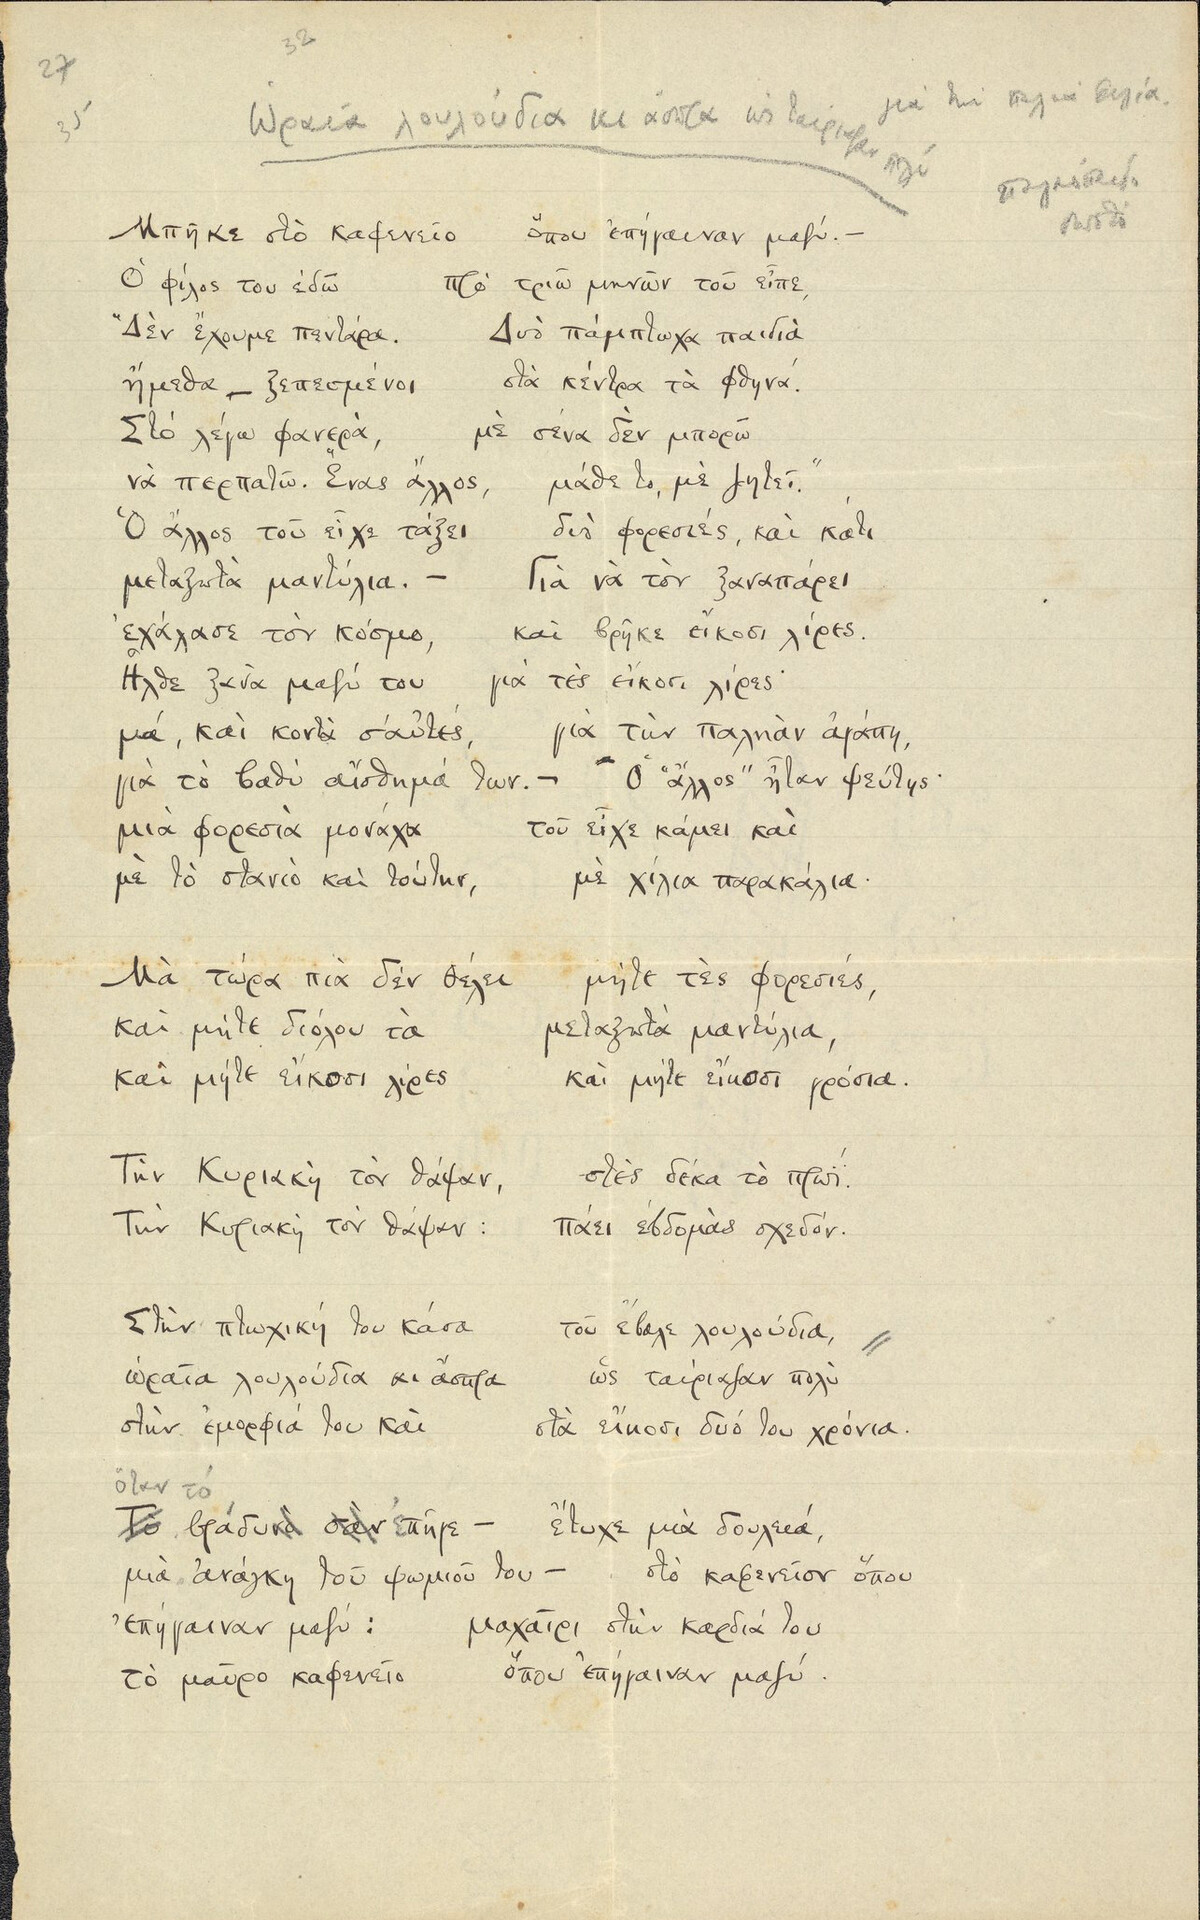 32
27
35
Ὡραῖα λουλούδια κι ἄσπρα ὡς ταίριαζαν πολύ
γιὰ τὴν
Μπῆκε στὸ καφενεῖο ὅπου ἐπήγαιναν μαζύ.—
Ὁ φίλος του ἐδῶ πρὸ τριῶ μηνῶν τοῦ εἶπε,
"Δὲν ἔχουμε πεντάρα. Δυὸ πάμπτωχα παιδιὰ
ἤμεθα — ξεπεσμένοι στὰ κέντρα τὰ φθηνά.
Στὸ λέγω φανερὰ, μὲ σένα δὲν μπορῶ
νὰ περπατῶ. Ἕνας ἄλλος, μάθε το, μὲ ζητεῖ."
Ὁ ἄλλος τοῦ εἶχε τάξει δυὸ φορεσιές, καὶ κάτι
μεταξωτὰ μαντύλια.— Γιὰ νὰ τὸν ξαναπάρει
ἐχάλασε τὸν κόσμο, καὶ βρῆκε εἴκοσι λίρες.
Ἦλθε ξανὰ μαζύ του γιὰ τὲς εἴκοσι λίρες·
μά, καὶ κοντὰ σ' αὐτές, γιὰ τὴν παληὰν ἀγάπη,
γιὰ τὸ βαθὺ αἴσθημά των.— Ὁ "ἄλλος" ἦταν ψεύτης·
μιὰ φορεσιὰ μονάχα τοῦ εἶχε κάμει καὶ
μὲ τὸ στανιὸ καὶ τούτην, μὲ χίλια παρακάλια.
Μὰ τώρα πιὰ δὲν θέλει μήτε τὲς φορεσιές,
καὶ μήτε διόλου τὰ μεταξωτὰ μαντύλια,
καὶ μήτε εἴκοσι λίρες καὶ μήτε εἴκοσι γρόσια.
Τὴν Κυριακὴ τὸν θάψαν, στὲς δέκα τὸ πρωΐ.
Τὴν Κυριακὴ τὸν θάψαν: πάει ἑβδομὰς σχεδόν.
Στὴν πτωχική του κάσα τοῦ ἔβαλε λουλούδια,
ὡραῖα λουλούδια κι ἄσπρα ὡς ταίριαζαν πολὺ
στὴν ἐμορφιά του καὶ στὰ εἴκοσι δυό του χρόνια.
ὅταν τὸ
Τὸ βράδυνὰ σὰν ἐπῆγε — ἔτυχε μιὰ δουλειά,
μιὰ ἀνάγκη τοῦ ψωμιοῦ του — στὸ καφενεῖον ὅπου
ἐπήγαιναν μαζύ: μαχαῖρι στὴν καρδιά του
τὸ μαῦρο καφενεῖο ὅπου ἐπήγαιναν μαζύ.